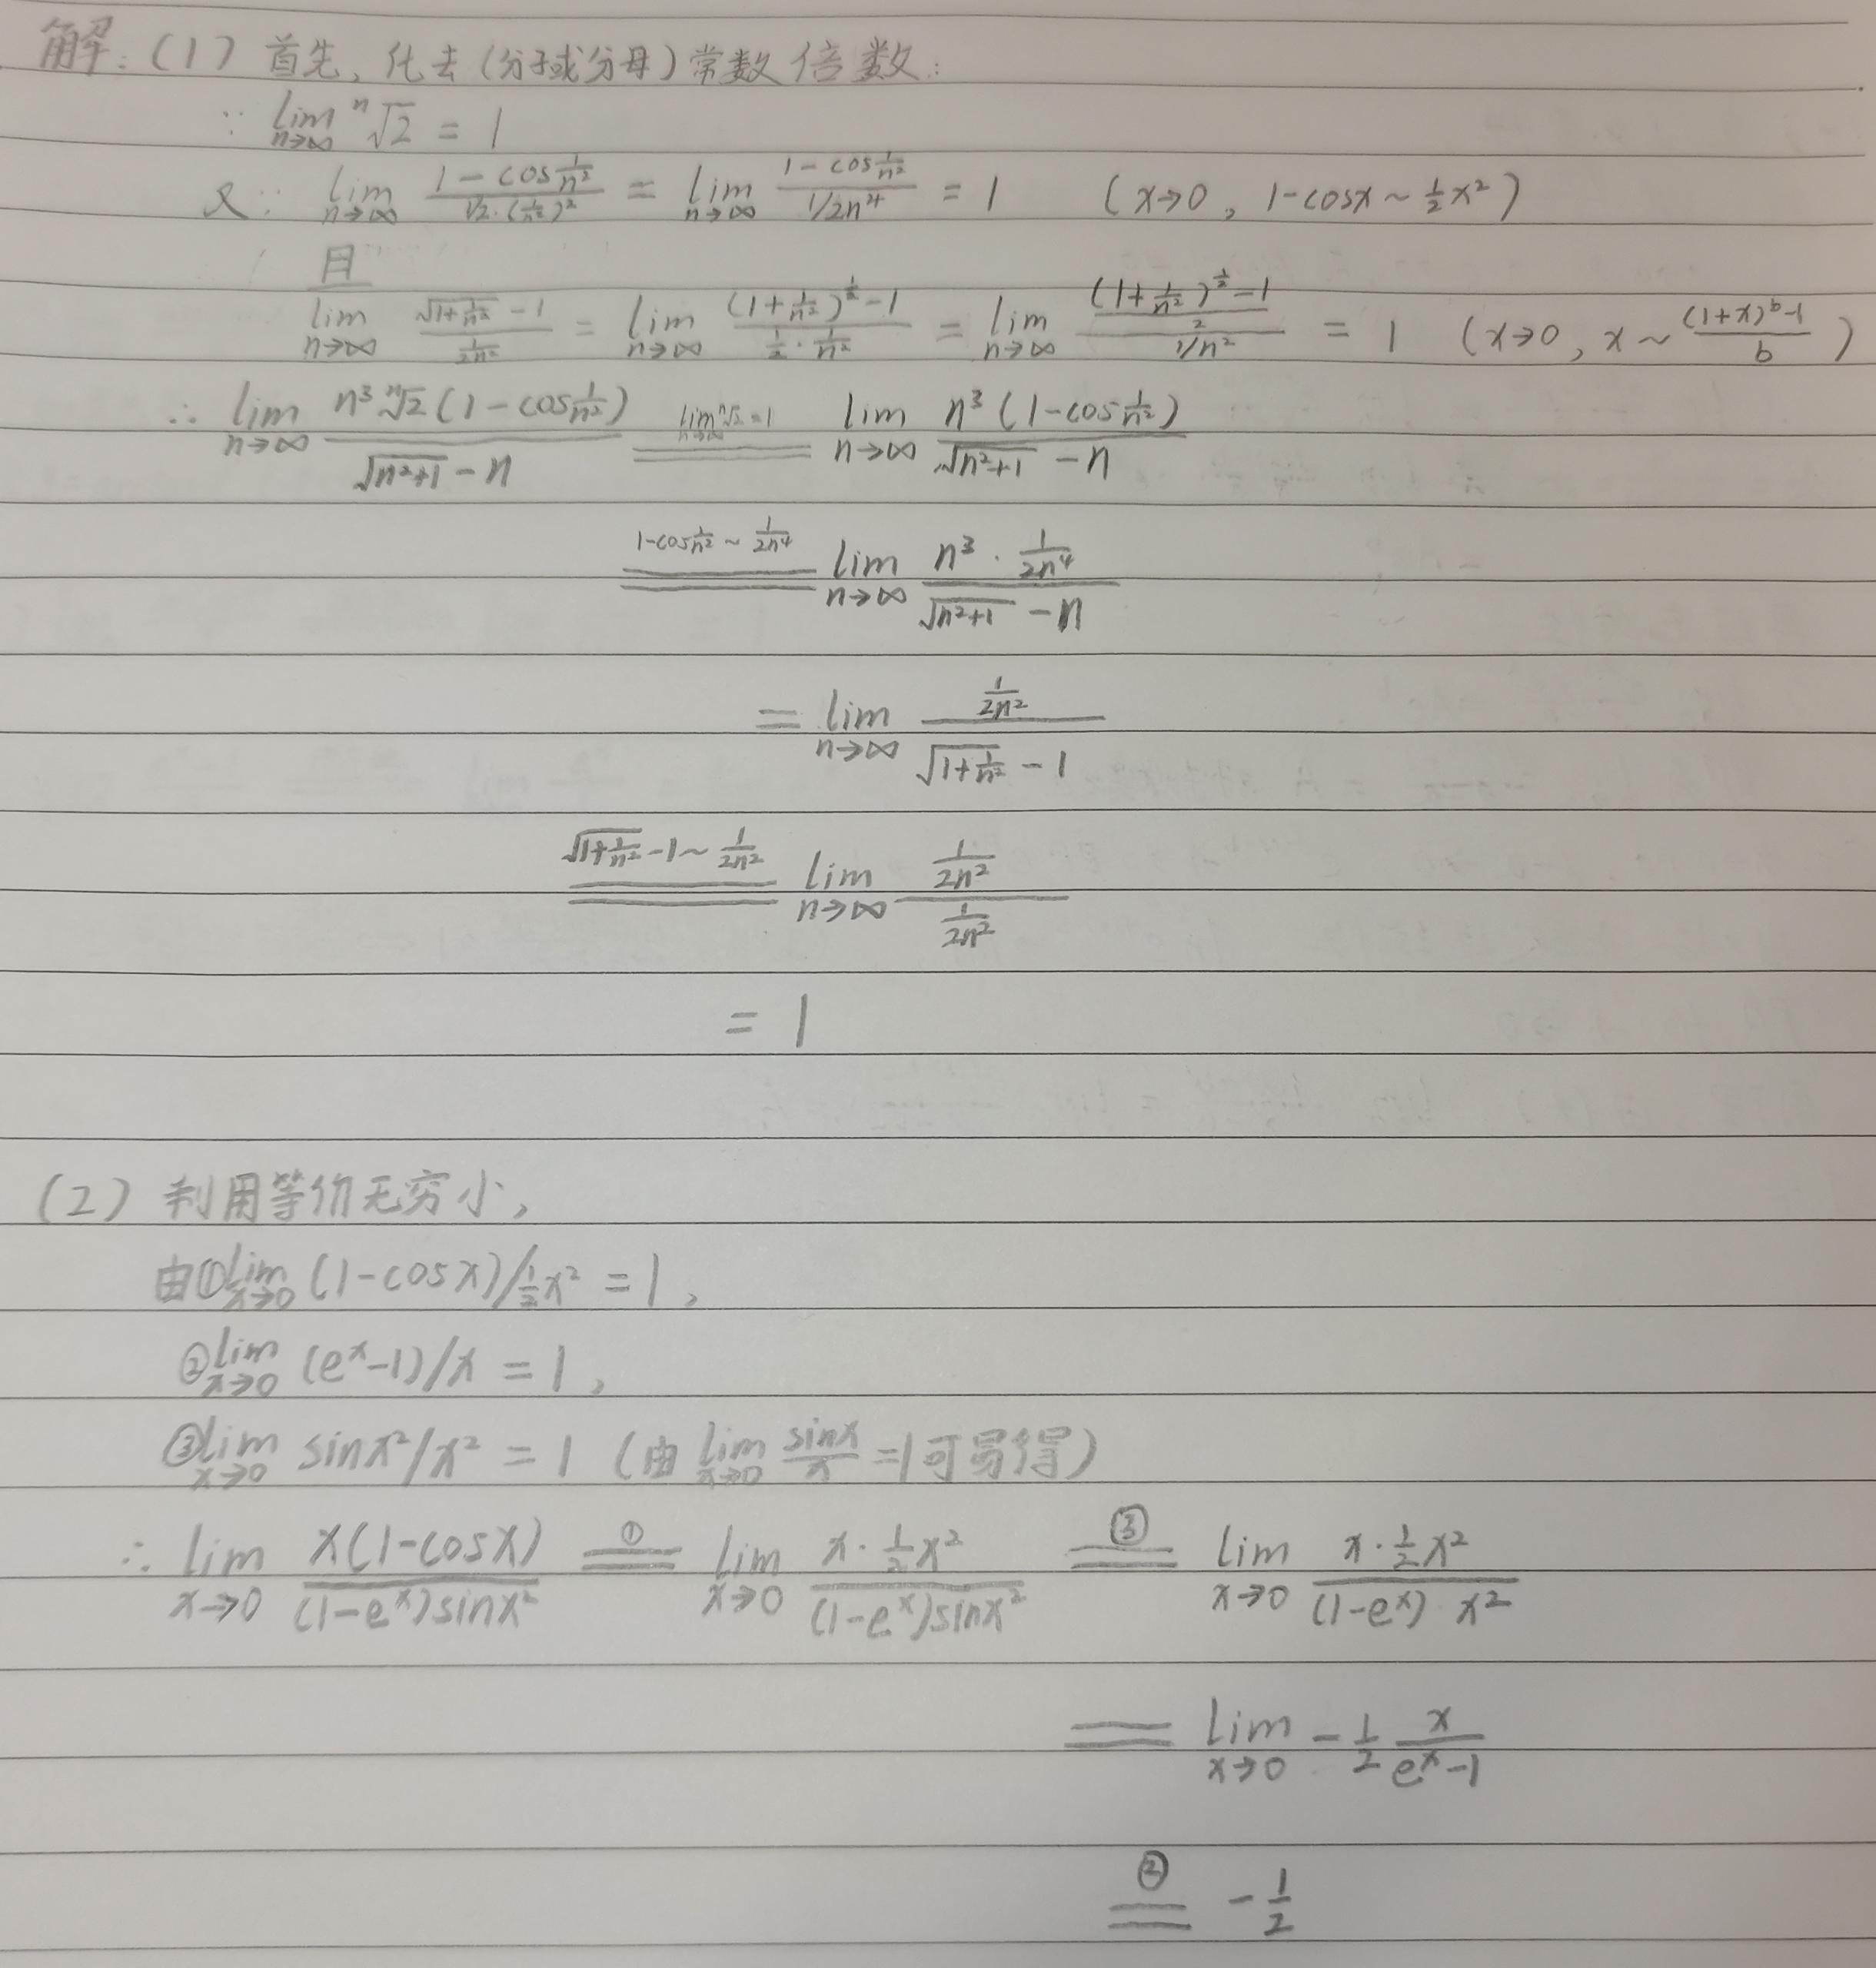 解:(1) 首先,化去(分子或分母)常数倍数:
∵ lim_{n→∞} ⁿ√2 = 1
又∵ lim_{n→∞} (1-cos(1/n²))/(1/2·(1/n²)²) = lim_{n→∞} (1-cos(1/n²))/(1/2n⁴) = 1 (x→0, 1-cosx ~ ½x²)
且
lim_{n→∞} (√(1+1/n²) - 1)/(1/2n²) = lim_{n→∞} ((1+1/n²)^{1/2} - 1)/(1/2·1/n²) = lim_{n→∞} (((1+1/n²)^{1/2} - 1)/(1/2))/(1/n²) = 1 (x→0, x ~ ((1+x)^b - 1)/b)
∴ lim_{n→∞} n³ ⁿ√2 (1-cos(1/n²))/(√(n²+1) - n) =(lim_{n→∞} ⁿ√2 = 1)= lim_{n→∞} n³(1-cos(1/n²))/(√(n²+1) - n)
=(1-cos(1/n²) ~ 1/2n⁴)= lim_{n→∞} (n³ · 1/2n⁴)/(√(n²+1) - n)
= lim_{n→∞} (1/2n²)/(√(1+1/n²) - 1)
=(√(1+1/n²) - 1 ~ 1/2n²)= lim_{n→∞} (1/2n²)/(1/2n²)
= 1
(2) 利用等价无穷小,
由① lim_{x→0} (1-cosx)/½x² = 1,
② lim_{x→0} (eˣ-1)/x = 1,
③ lim_{x→0} sinx²/x² = 1 (由 lim_{x→0} sinx/x = 1可易得)
∴ lim_{x→0} x(1-cosx)/((1-eˣ)sinx²) =①= lim_{x→0} (x·½x²)/((1-eˣ)sinx²) =③= lim_{x→0} (x·½x²)/((1-eˣ) x²)
= lim_{x→0} -½ x/(eˣ-1)
=②= -½